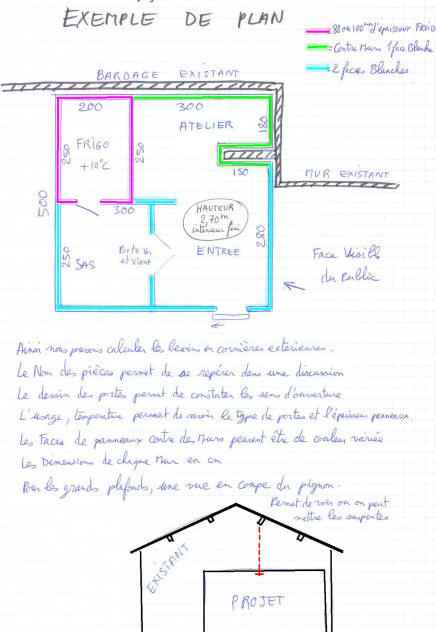 EXEMPLE DE PLAN
80 ou 100mm d'épaisseur FROID
= Contre Murs 1 face Blanche
= 2 faces Blanches
BARDAGE EXISTANT
200
300
ATELIER
180
FRIGO
+10°C
250
250
150
MUR EXISTANT
500
300
HAUTEUR
2,70m
intérieur fini
280
250
SAS
Porte Va
et Vient
ENTREE
Face Visible
du Public
Ainsi nous pouvons calculer les besoins en cornières extérieures.
Le Nom des pièces permet de se repérer dans une discussion
Le dessin des portes permet de constater les sens d'ouverture
L'usage, température permet de savoir le type de portes et l'épaisseur panneaux.
Les Faces de panneaux contre des Murs peuvent être de couleur variée
Les Dimensions de chaque Mur en cm
Pour les grands plafonds, une vue en coupe du pignon.
Permet de voir où on peut
mettre les suspentes
EXISTANT
PROJET